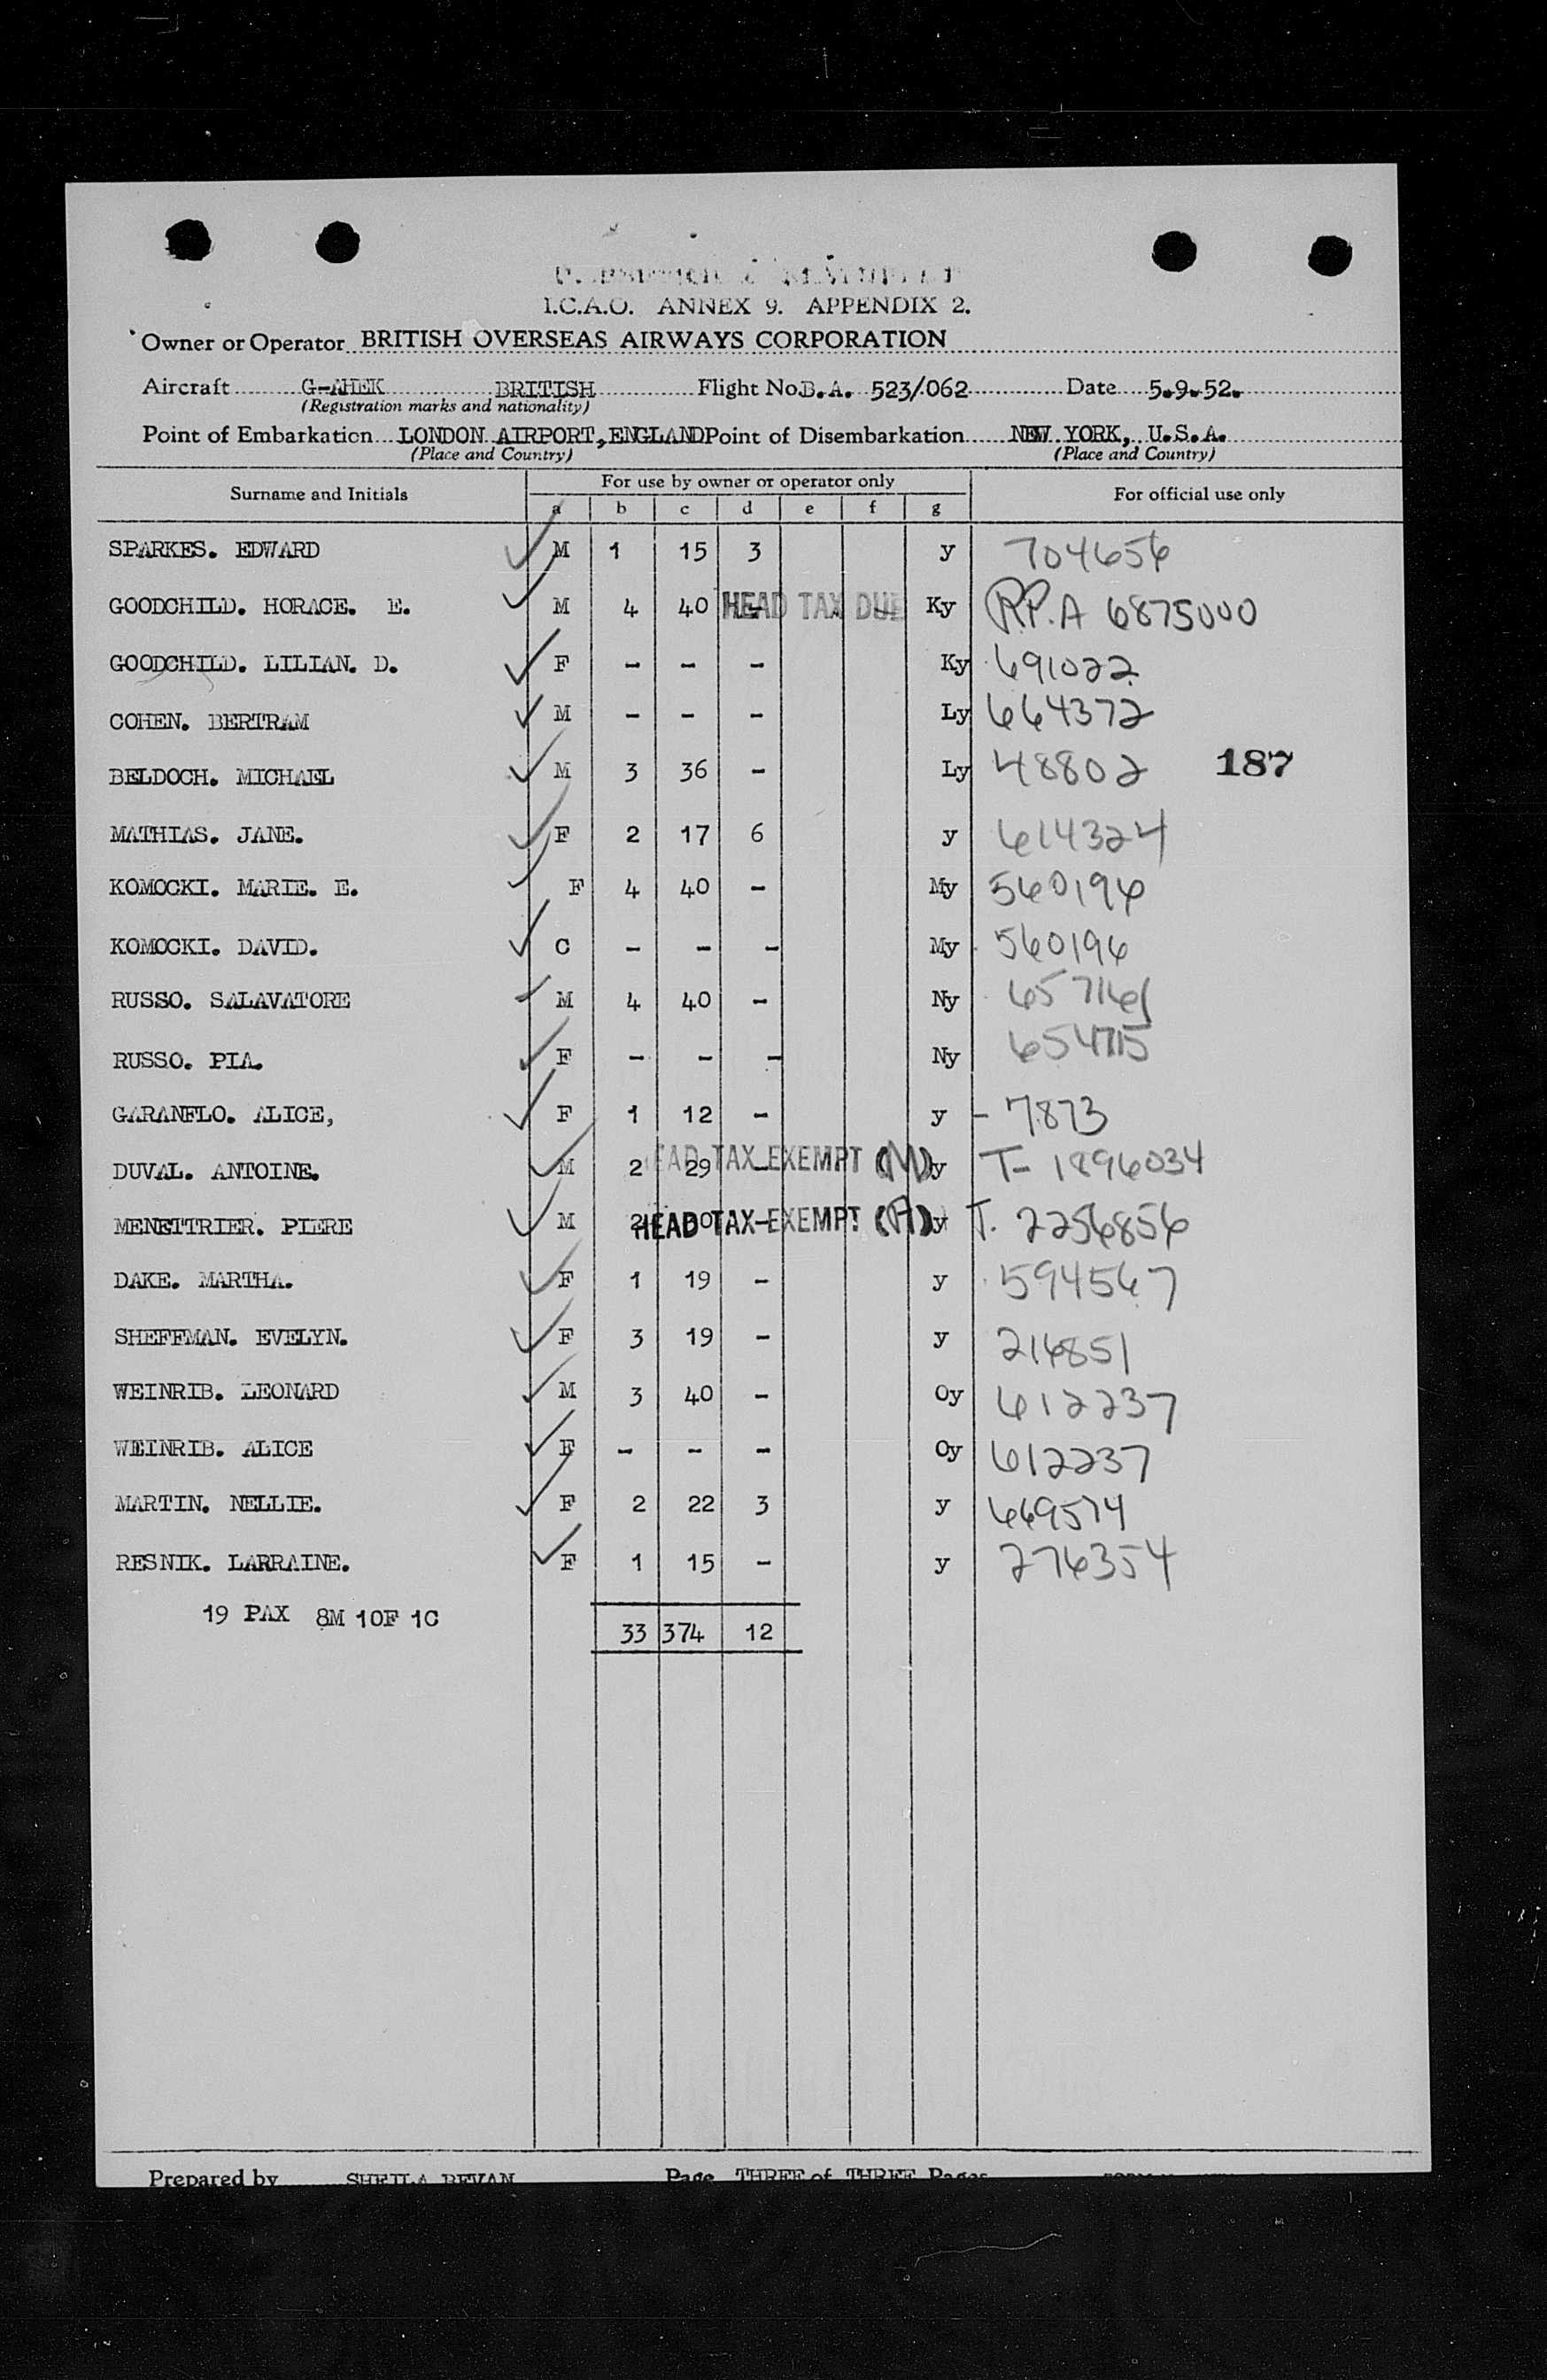 I.C.A.O. ANNEX 9. APPENDIX 2.
Owner or Operator BRITISH OVERSEAS AIRWAYS CORPORATION
Aircraft G-AHEK BRITISH Flight No. B.A. 523/062 Date 5.9.52.
(Registration marks and nationality)
Point of Embarkation LONDON AIRPORT, ENGLAND Point of Disembarkation NEW YORK, U.S.A.
(Place and Country) (Place and Country)
Surname and Initials For use by owner or operator only For official use only
a b c d e f g
SPARKES. EDWARD M 1 15 3 y 704656
GOODCHILD. HORACE. E. M 4 40 - HEAD TAX DUE Ky P.P. A 6875000
GOODCHILD. LILIAN. D. F - - - Ky 691022
COHEN. BERTRAM M - - - Ly 664372
BELDOCH. MICHAEL M 3 36 - Ly 48802 187
MATHIAS. JANE. F 2 17 6 y 614324
KOMOCKI. MARIE. E. F 4 40 - My 560196
KOMOCKI. DAVID. C - - - My 560196
RUSSO. SALAVATORE M 4 40 - Ny
RUSSO. PIA. F - - - Ny 654715
GARANFLO. ALICE, F 1 12 - y - 7873
DUVAL. ANTOINE. M 2 29 - HEAD TAX EXEMPT y T- 1896034
MENETTRIER. PIERE M 2 HEAD TAX EXEMPT (A) y T. 2256856
DAKE. MARTHA. F 1 19 - y 594567
SHEFFMAN. EVELYN. F 3 19 - y 216851
WEINRIB. LEONARD M 3 40 - Oy 612237
WEINRIB. ALICE F - - - Oy 612237
MARTIN. NELLIE. F 2 22 3 y 669574
RESNIK. LARRAINE. F 1 15 - y 276354
19 PAX 8M 10F 1C 33 374 12
Prepared by SHEILA BEVAN Page THREE of THREE Pages